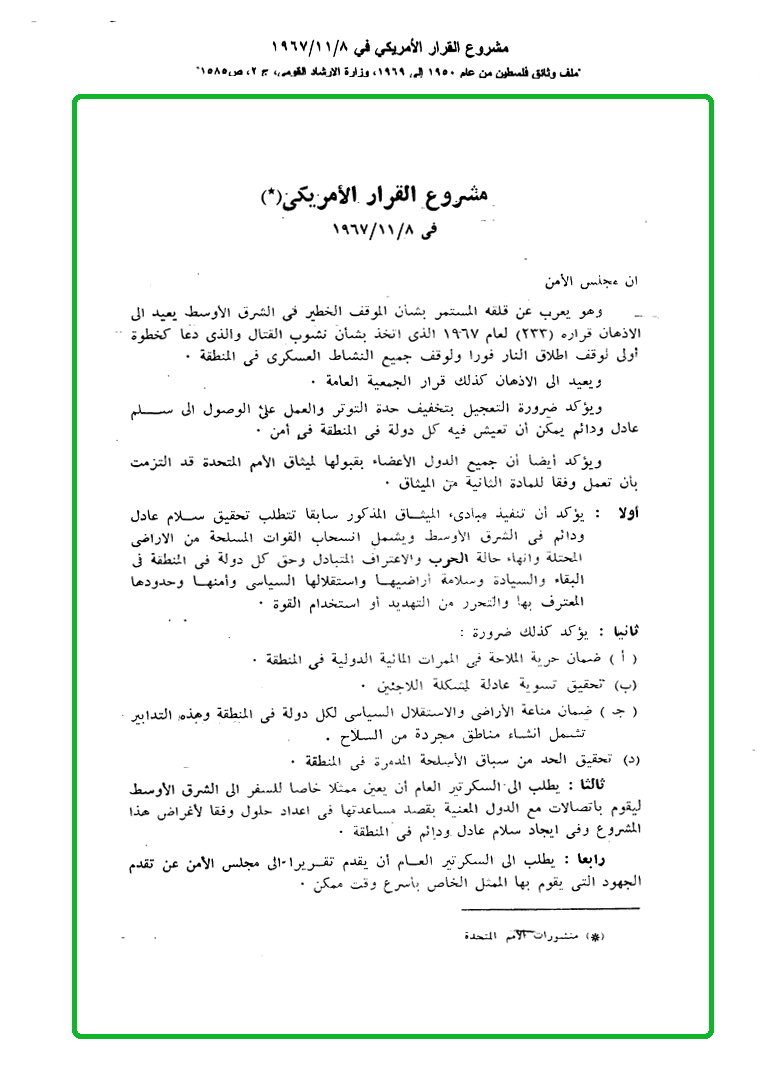 مشروع القرار الأمريكي في ١٩٦٧/١١/٨
"ملف وثائق فلسطين من عام ١٩٥٠ إلى ١٩٦٩، وزارة الارشاد القومي، ج ٢، ص١٥٨٥"
مشروع القرار الأمريكى(*)
فى ١٩٦٧/١١/٨
ان مجلس الأمن
وهو يعرب عن قلقه المستمر بشأن الموقف الخطير فى الشرق الأوسط يعيد الى
الاذهان قراره (٢٣٣) لعام ١٩٦٧ الذى اتخذ بشأن نشوب القتال والذى دعا كخطوة
أولى لوقف اطلاق النار فورا ولوقف جميع النشاط العسكرى فى المنطقة ٠
ويعيد الى الاذهان كذلك قرار الجمعية العامة ٠
ويؤكد ضرورة التعجيل بتخفيف حدة التوتر والعمل على الوصول الى ســلم
عادل ودائم يمكن أن تعيش فيه كل دولة فى المنطقة فى أمن ٠
ويؤكد أيضا أن جميع الدول الأعضاء بقبولها لميثاق الأمم المتحدة قد التزمت
بأن تعمل وفقا للمادة الثانية من الميثاق ٠
أولا : يؤكد أن تنفيذ مبادىء الميثـاق المذكور سابقا تتطلب تحقيق سلام عادل
ودائم فى الشرق الأوسط ويشمل انسحاب القوات المسلحة من الاراضى
المحتلة وانهاء حالة الحرب والاعتراف المتبادل وحق كل دولة فى المنطقة فى
البقاء والسيادة وسلامة أراضيهـا واستقلالها السياسى وأمنهـا وحدودها
المعترف بها والتحرر من التهديد أو استخدام القوة ٠
ثانيا : يؤكد كذلك ضرورة :
( أ ) ضمان حرية الملاحة فى الممرات المائية الدولية فى المنطقة ٠
(ب) تحقيق تسوية عادلة لمشكلة اللاجئين ٠
( جـ ) ضمان مناعة الأراضى والاستقلال السياسى لكل دولة فى المنطقة وهذه التدابير
تشمل انشاء مناطق مجردة من السلاح ٠
(د) تحقيق الحد من سباق الأسلحة المدمرة فى المنطقة ٠
ثالثا : يطلب الى السكرتير العام أن يعين ممثلا خاصا للسفر الى الشرق الأوسط
ليقوم باتصالات مع الدول المعنية بقصد مساعدتها فى اعداد حلول وفقا لأغراض هذا
المشروع وفى ايجاد سلام عادل ودائم فى المنطقة ٠
رابعا : يطلب الى السكرتير العـام أن يقدم تقـريرا الى مجلس الأمن عن تقدم
الجهود التى يقوم بها الممثل الخاص بأسرع وقت ممكن ٠
(*) منشورات الأمم المتحدة